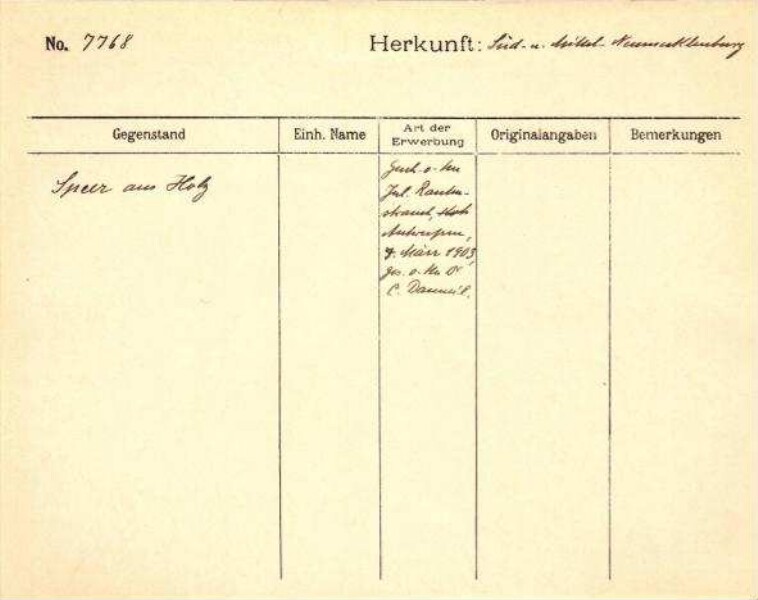 No. 7768
Herkunft: Süd- u. Mittel-Neumecklenburg
Gegenstand
Einh. Name
Art der Erwerbung
Originalangaben
Bemerkungen
Speer aus Holz
Gesch. v. Hn
Jul. Rauten-
strauch,
Antwerpen,
März 1903,
ges. v. Hn Dr
C. Danneil.